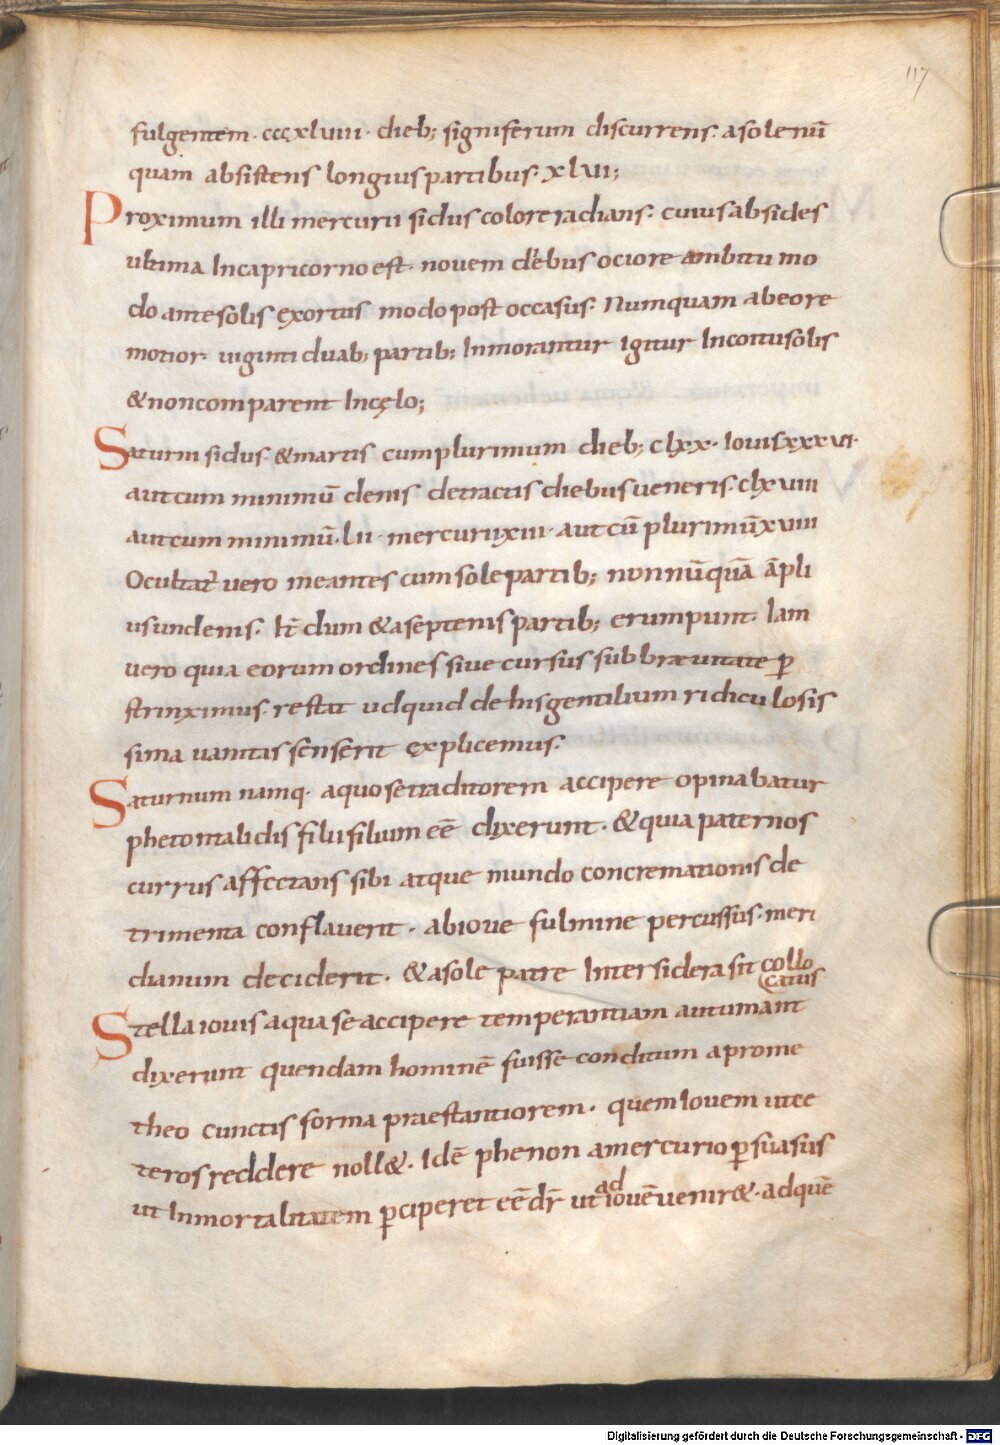 117
fulgentem · cccxlviiii · dieb; signiferum discurrens · a sole nū
quam absistens longius partibus · xlvii;
Proximum illi mercurii sidus colore radians · cuius absides
ultima In capricorno est · novem diebus ociore ambitu mo
do ante solis exortus modo post occasus · Numquam ab eo re
motior viginti duab; partib; Inmorantur Igitur In coitu solis
& non comparent In cęlo;
Saturni sidus & martis cum plurimum dieb; clxx · Iovis xxxvi ·
aut cum minimū denis detractis diebus veneris · clxviiii
aut cum minimū · lii · mercurii xiii · aut cū plurimū xviiii
Ocultat᷑ vero meantes cum sole partib; non nūquā āpli
us undenis · It̄ dum & a septenis partib; erumpunt · Iam
vero quia eorum ordines sive cursus sub brævitate p̱
strinximus · restat ud quid de his gentilium ridiculosis
sima vanitas senserit explicemus ·
Saturnum namq · a quo se traditorem accipere opinabatur
phetontalidis filii filium eē dixerunt · & quia paternos
currus affectans sibi atque mundo concremationis de
trimenta conflaverit · ab iove fulmine percussus · meri
dianum deciderit · & a sole patre Inter sidera sit collo
catus
Stella iovis a qua se accipere temperantiam autumant
dixerunt quendam hominē fuisse conditum a prome
theo cunctis forma praestantiorem · quem Iovem ut ce
teros reddere noll& · Idē phenon a mercurio p̱suasus
ut Inmortalitatem p̱ciperet eē dr̄ ut ad iovē venir& · ad quē
Digitalisierung gefördert durch die Deutsche Forschungsgemeinschaft - DFG